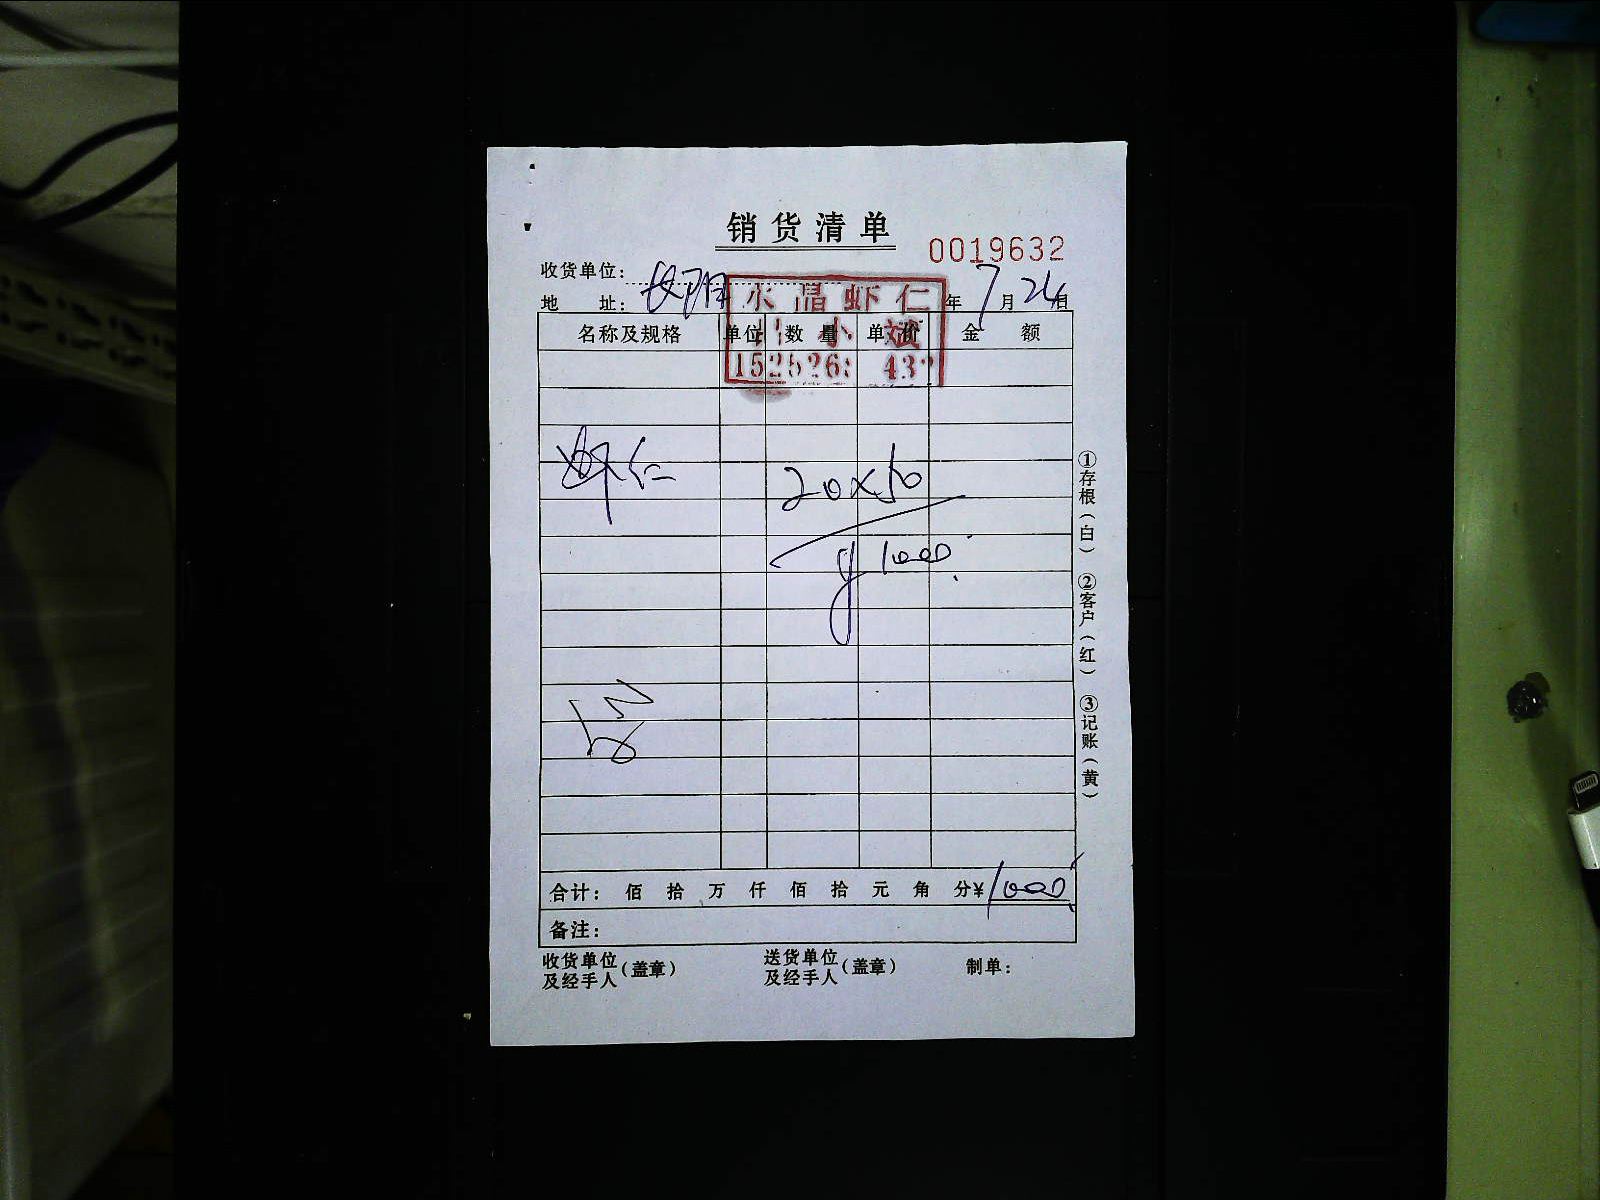 销货清单
0019632
收货单位：
地 址： 年 7 月 24 日
水晶虾仁
名称及规格 单位 数量 单价 金额
虾仁 20×50
1000
合计： 佰 拾 万 仟 佰 拾 元 角 分¥1000
备注：
收货单位及经手人（盖章） 送货单位及经手人（盖章） 制单：
①存根（白） ②客户（红） ③记账（黄）